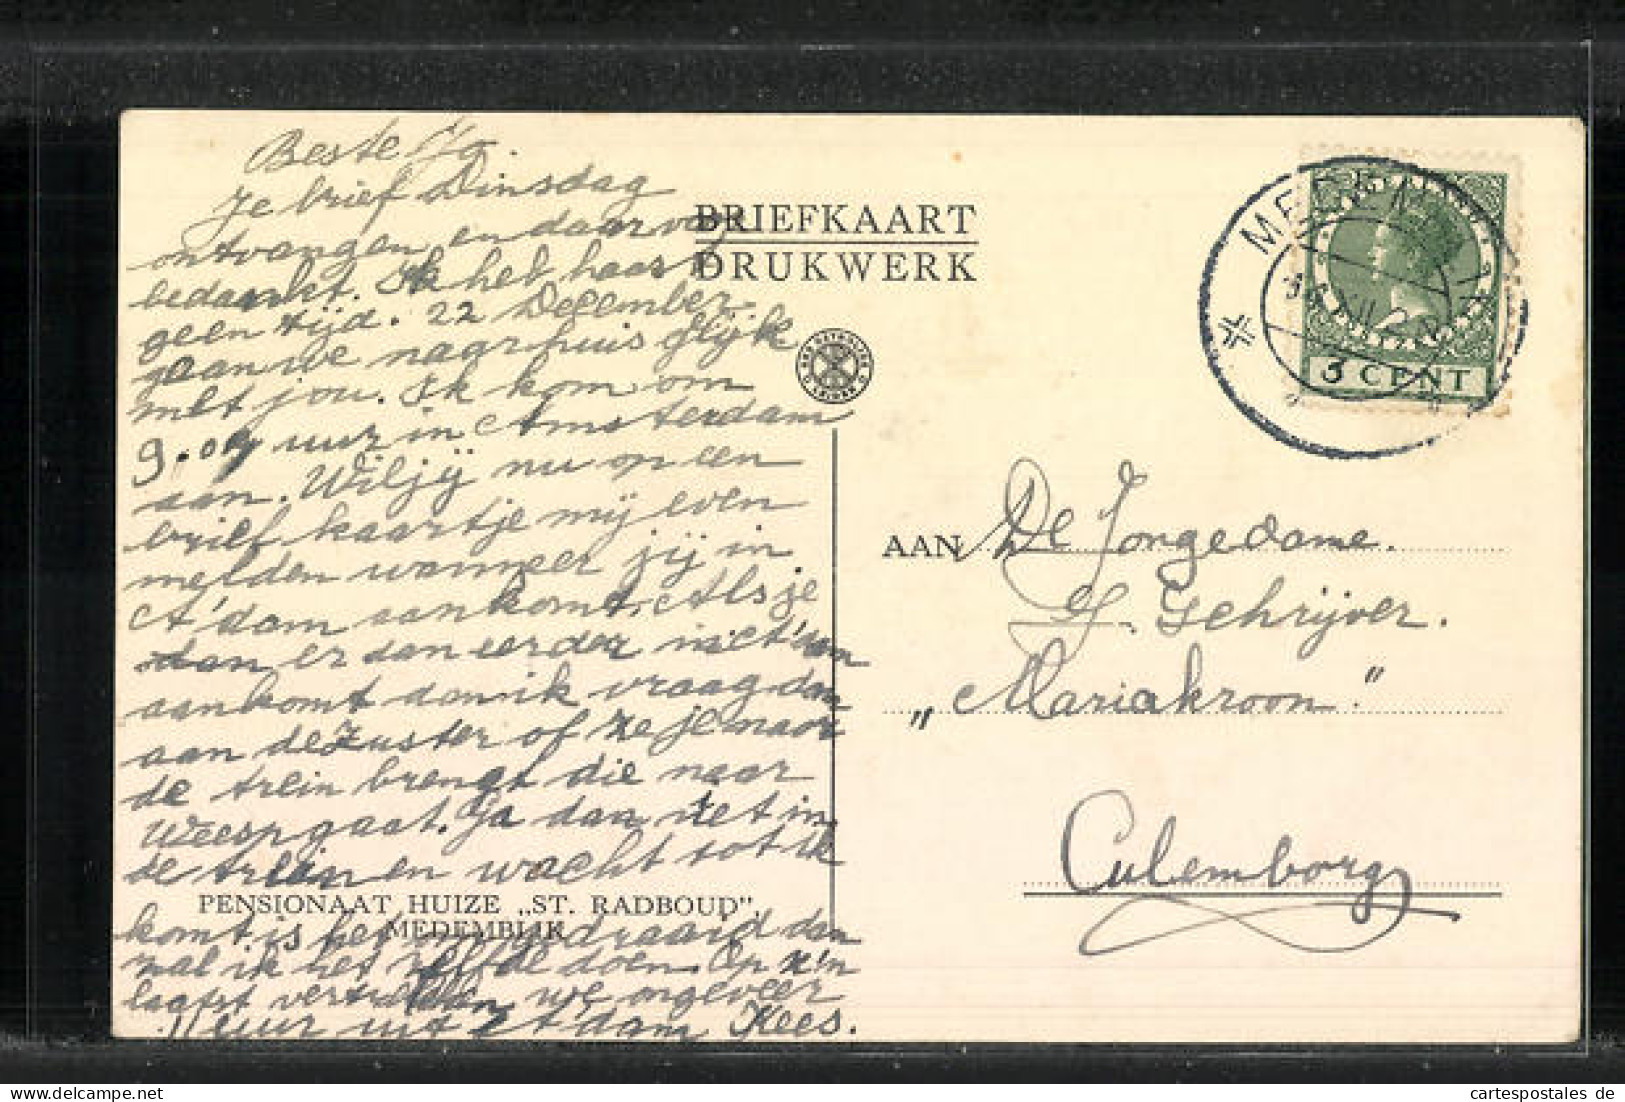 Beste Jo.
Je brief Dinsdag
ontvangen en daarvoor
bedankt. Ik heb haast
geen tijd. 22 December.
gaan we naar huis gelijk
met jou. Ik kom om
9.09 uur in Amsterdam
aan. Wil jij nu op een
brief kaartje mij even
melden wanneer jij in
A'dam aankomt. Als je
dan er dan eerder in A'dam
aankomt dan ik vraag dan
aan de Zuster of ze je naar
de trein brengt die naar
Weesp gaat. Ga dan vlet in
de trein en wacht tot ik
PENSIONAAT HUIZE „ST. RADBOUD"
MEDEMBLIK
komt, is het omgedraaid dan
zal ik het zelfde doen. Op z'n
laatst vertrekken we ongeveer
11 uur uit A'dam Kees.
BRIEFKAART
DRUKWERK
3 CENT
AAN De Jongedame.
J. Schrijver.
„Mariakroon."
Culemborg
cartespostales de